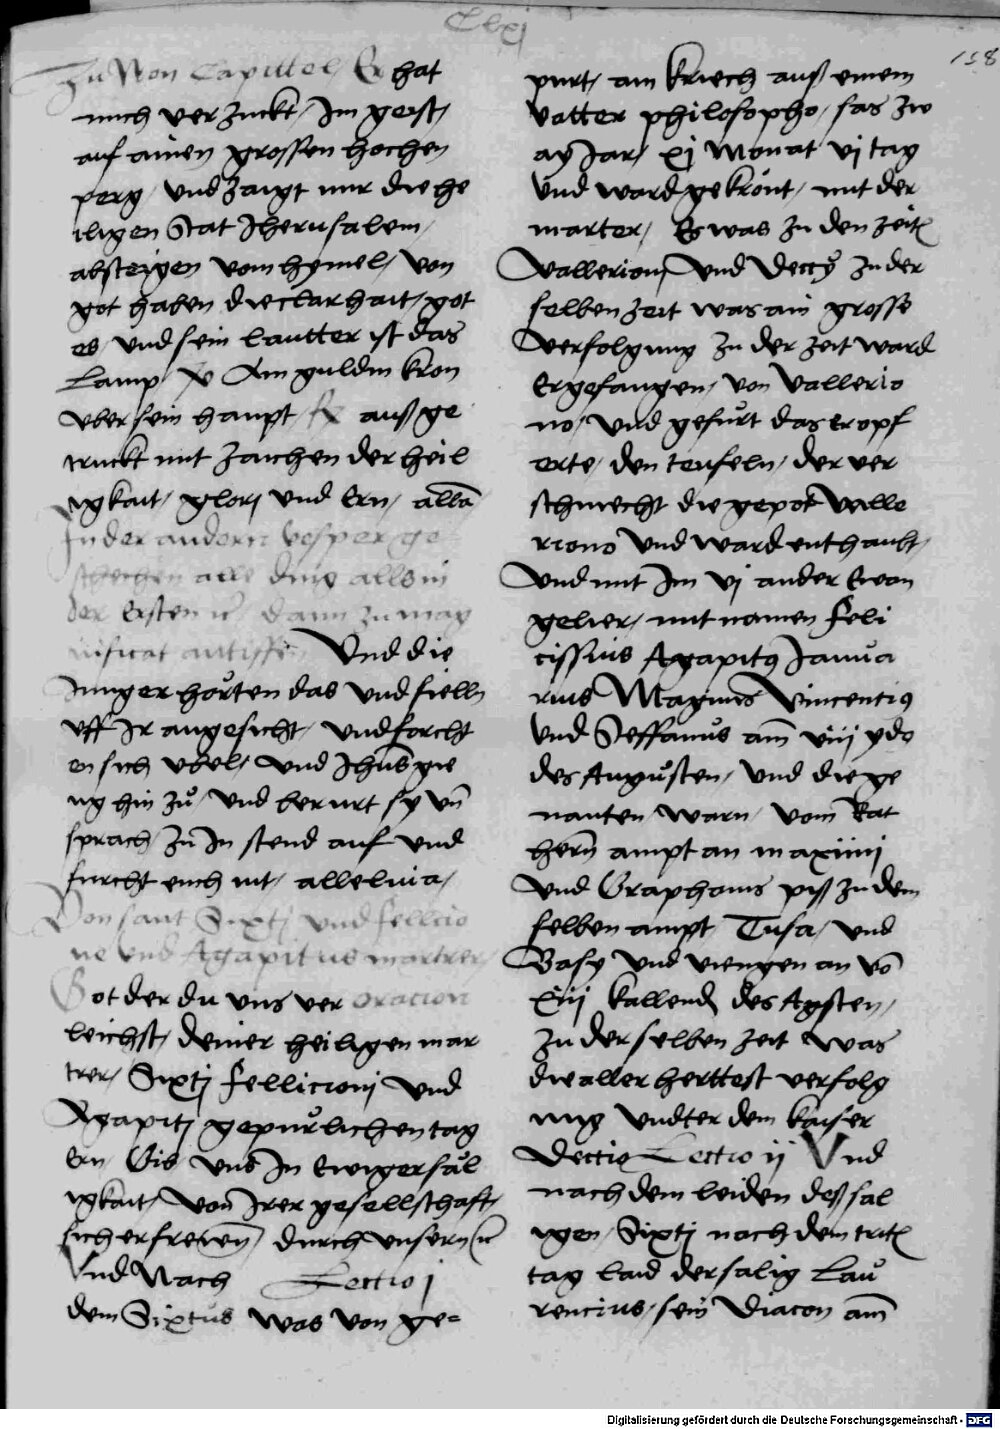 Clxj
158
Zu Non Capittel Er hat
mich verzuckt / Jm geist /
auf ainen grossen hochen
perg / vnd zaigt mir die he
iligen Stat Jherusalem /
absteigen vom hymel / von
got haben die clarhait / got
es / vnd sein lautter ist das
Lamp Ain guldin kron
vber sein haupt / auß ge
truckt mit zaichen der heil
igkait / glorj vnd Ern / alla
Jn der andern vesper ge
schechen alle ding alls in
der Ersten dann zu mag
nificat antiffen Vnd die
Junger hörten das vnd fielln
vff Jr angesicht / vnd forcht
en sich vbel / vnd Jhus gie
ng hin zů / vnd berurt sy vn̄
sprach / zu Jn stend auf vnd
furcht euch nit / alleluia /
Von sant Sixtj vnd fellicio
ne vnd Agapitus martrer
Got der du vns ver oracion
leichst / deiner heiligen mar
trer / Sixtj fellicionj vnd
Agapitj gepůrlichen tag
Ern / Gib vns Jn Ewiger säl
igkait / von Jrer gesellschaft /
sich erfrewen / durch vnsern
Vnd Nach Lectio j
dem Sixtus was von ge=
purt / am kriech auß einem
vatter philosopho / sas zw
ay Jar / xj Monat vj tag
vnd ward gekrönt / mit der
marter / Es was zu den zeitn
Vallerionj vnd Decij zu der
selben zeit was ain grosse
verfolgung zu der zeit ward
Er gefangen / von Vallerio
no / vnd gefürt das er opf
erte / den teufeln / der ver
schmecht die gepot Valle
riono vnd ward enthaubt /
vnd mit Jm vj ander Ewan
gelier / mit namen feli
cissius Agapitus Janua
rius Magnus Vincentius
vnd Steffanus am viij ydo
des Augusten / vnd die ge
nanten / warn / vom kat
hern ampt an maximi
vnd Graphonis piß zu dem
selben ampt / Tusa / vnd
Basy vnd viengen an vo
xiij kallend des Agsten /
zu der selben zeit was
die aller herttest verfolg
ung vndter dem kaiser
Decio Lectio ij Vnd
nach dem leiden deß sal
igen / Sixtj nach dem tritn
tag laid der salig Lau
rencius / sein diacon am
Digitalisierung gefördert durch die Deutsche Forschungsgemeinschaft - DFG